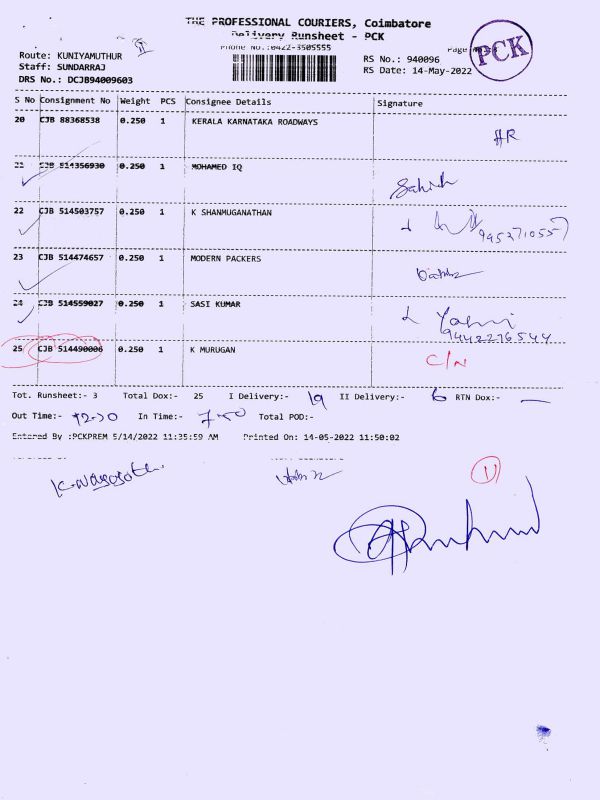 THE PROFESSIONAL COURIERS, Coimbatore
Delivery Runsheet - PCK
Phone No.:0422-3505555
Page No:
PCK
Route: KUNIYAMUTHUR
Staff: SUNDARRAJ
DRS No.: DCJB94009603
RS No.: 940096
RS Date: 14-May-2022
S No Consignment No Weight PCS Consignee Details Signature
20 CJB 88368538 0.250 1 KERALA KARNATAKA ROADWAYS HR
21 CJB 514356930 0.250 1 MOHAMED IQ
22 CJB 514503757 0.250 1 K SHANMUGANATHAN
9952710557
23 CJB 514474657 0.250 1 MODERN PACKERS
24 CJB 514559027 0.250 1 SASI KUMAR
9442276544
25 CJB 514490006 0.250 1 K MURUGAN C/N
Tot. Runsheet:- 3 Total Dox:- 25 I Delivery:- 19 II Delivery:- 6 RTN Dox:- —
Out Time:- 12.20 In Time:- 7.00 Total POD:-
Entered By :PCKPREM 5/14/2022 11:35:59 AM Printed On: 14-05-2022 11:50:02